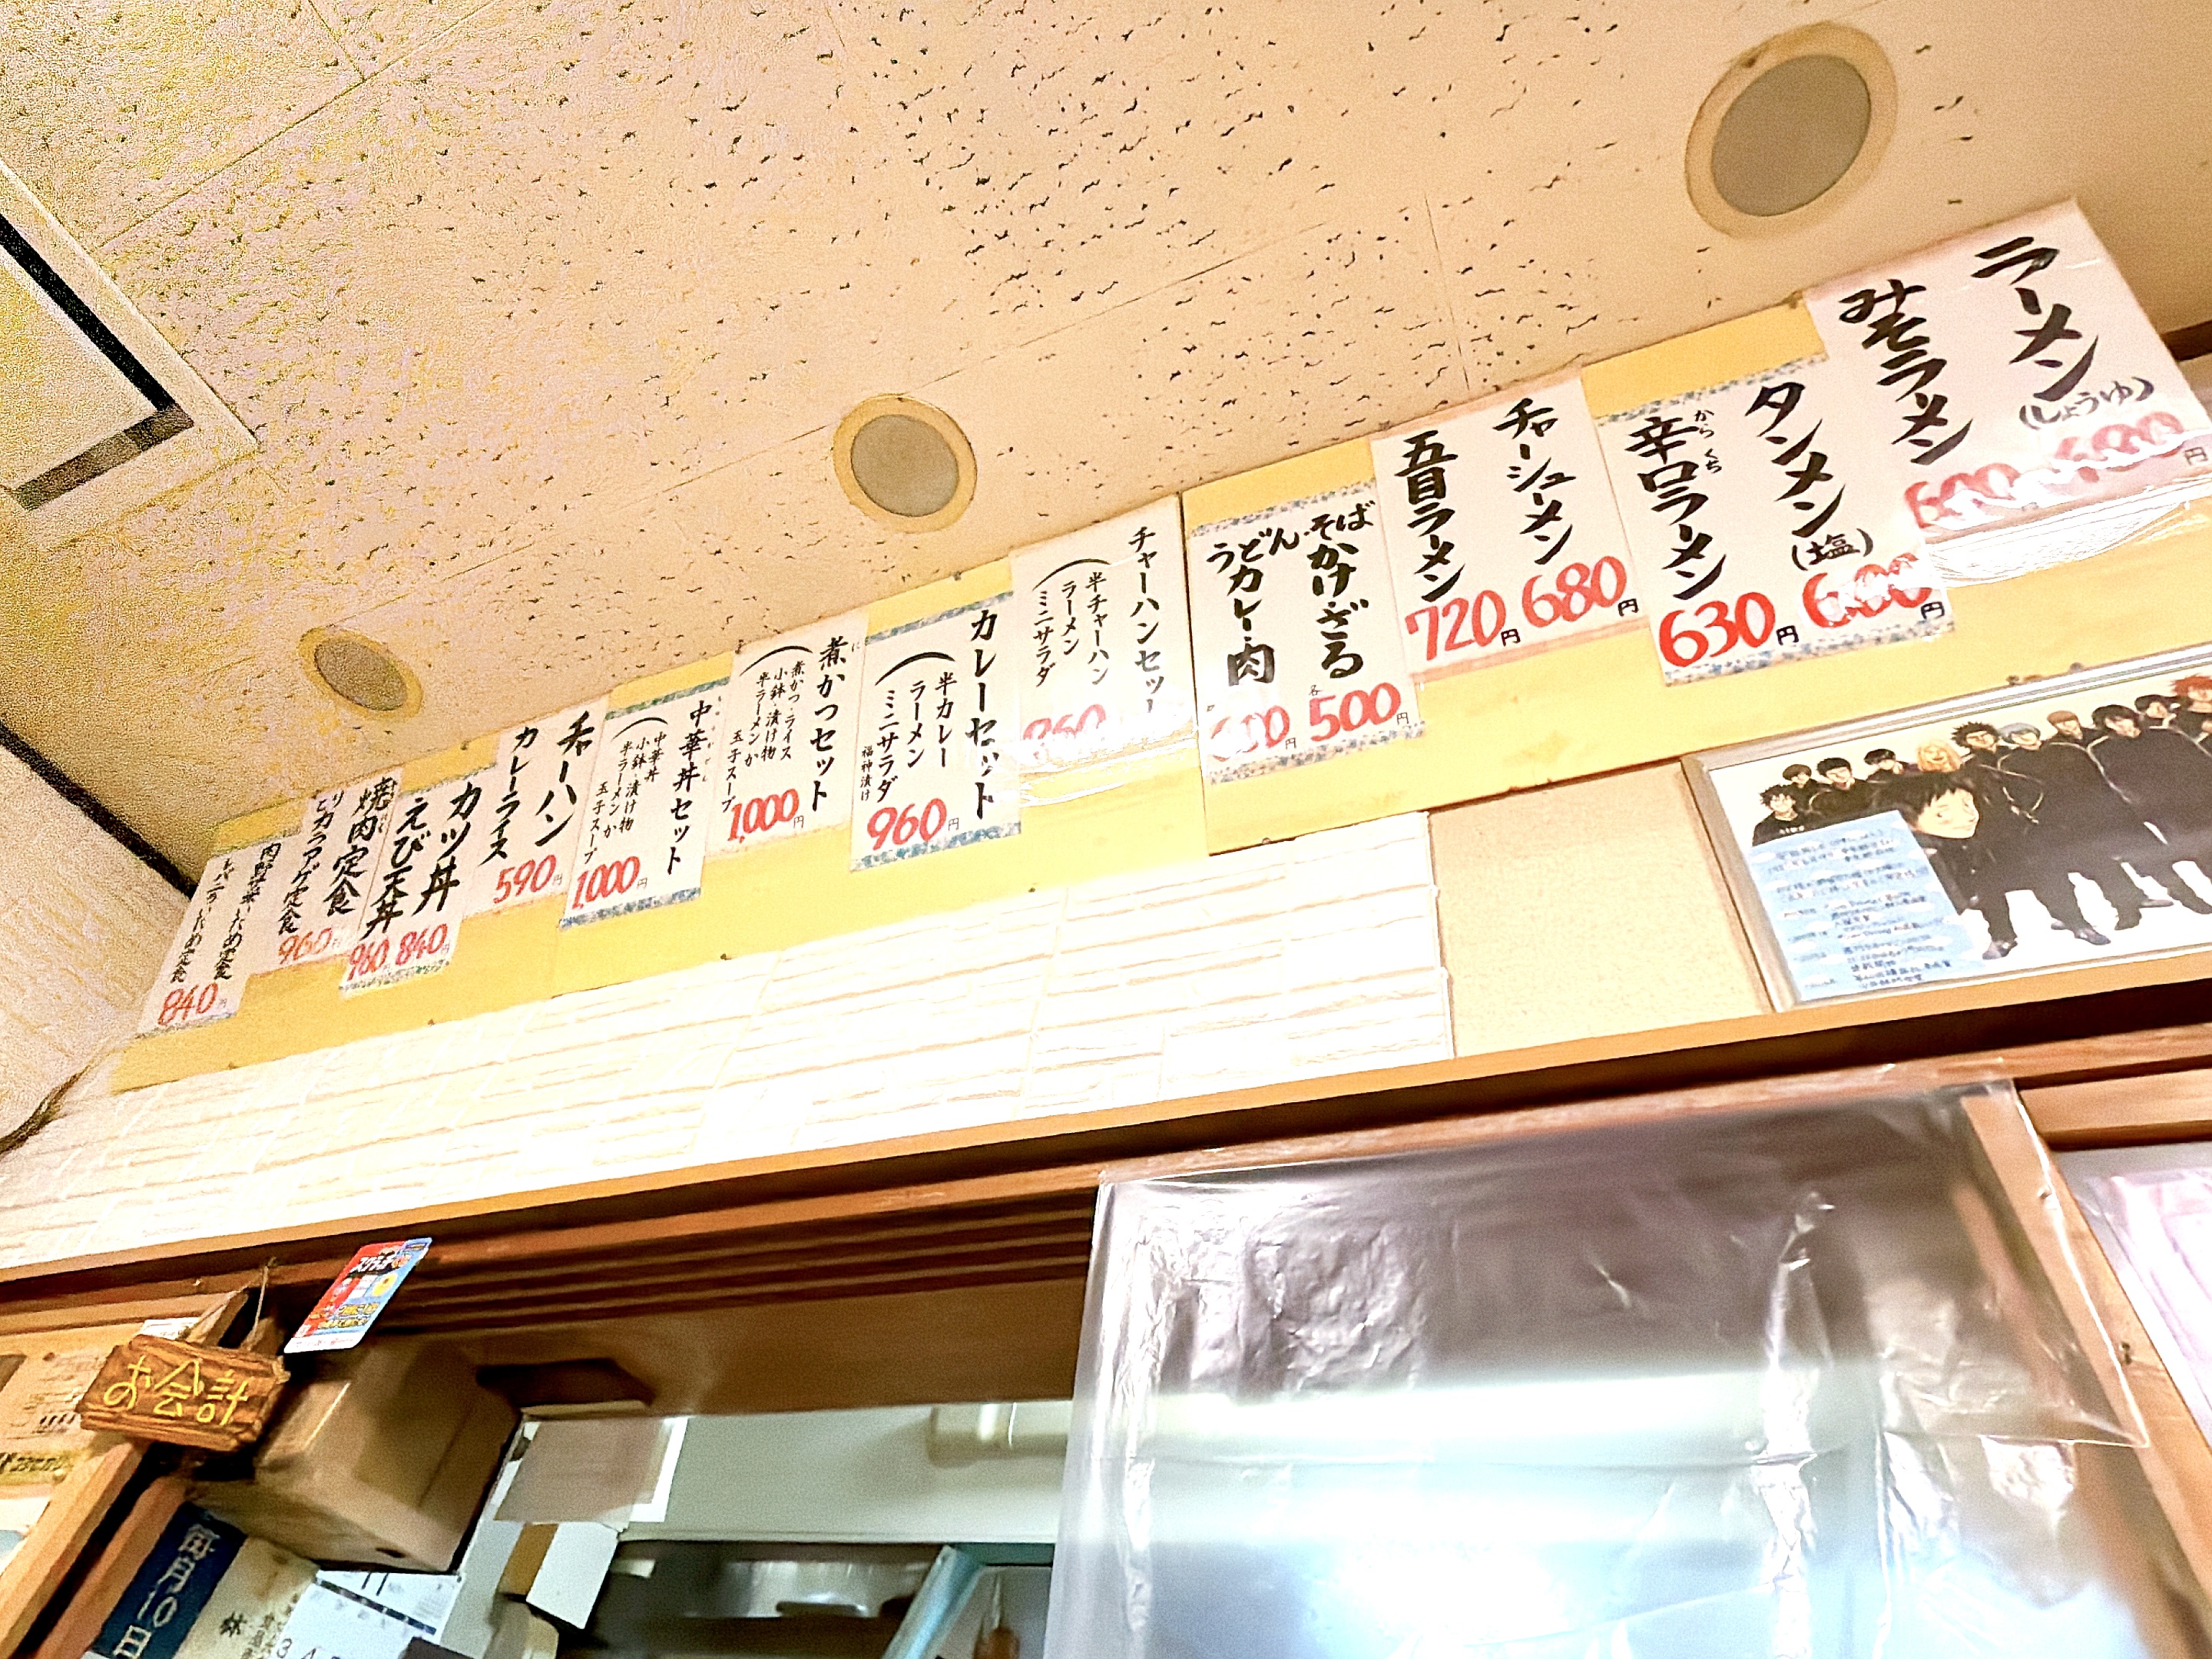 ラーメン
(しょうゆ)
円
みそラーメン
タンメン
(塩)
600円
辛口ラーメン
からくち
630円
チャーシューメン
680円
五目ラーメン
720円
そば
かけ・ざる
各500円
うどん
カレー・肉
600円
チャーハンセット
半チャーハン
ラーメン
ミニサラダ
860
カレーセット
半カレー
ラーメン
ミニサラダ
福神漬け
960円
煮かつセット
に
煮かつ・ライス
小鉢・漬け物
半ラーメンか
玉子スープ
1000円
中華丼セット
中華丼
小鉢・漬け物
半ラーメンか
玉子スープ
1000円
チャーハン
カレーライス
590円
カツ丼
840円
えび天丼
960
焼肉定食
トリカラアゲ定食
960円
肉野菜いため定食
レバニライため定食
840円
お会計
毎月10日